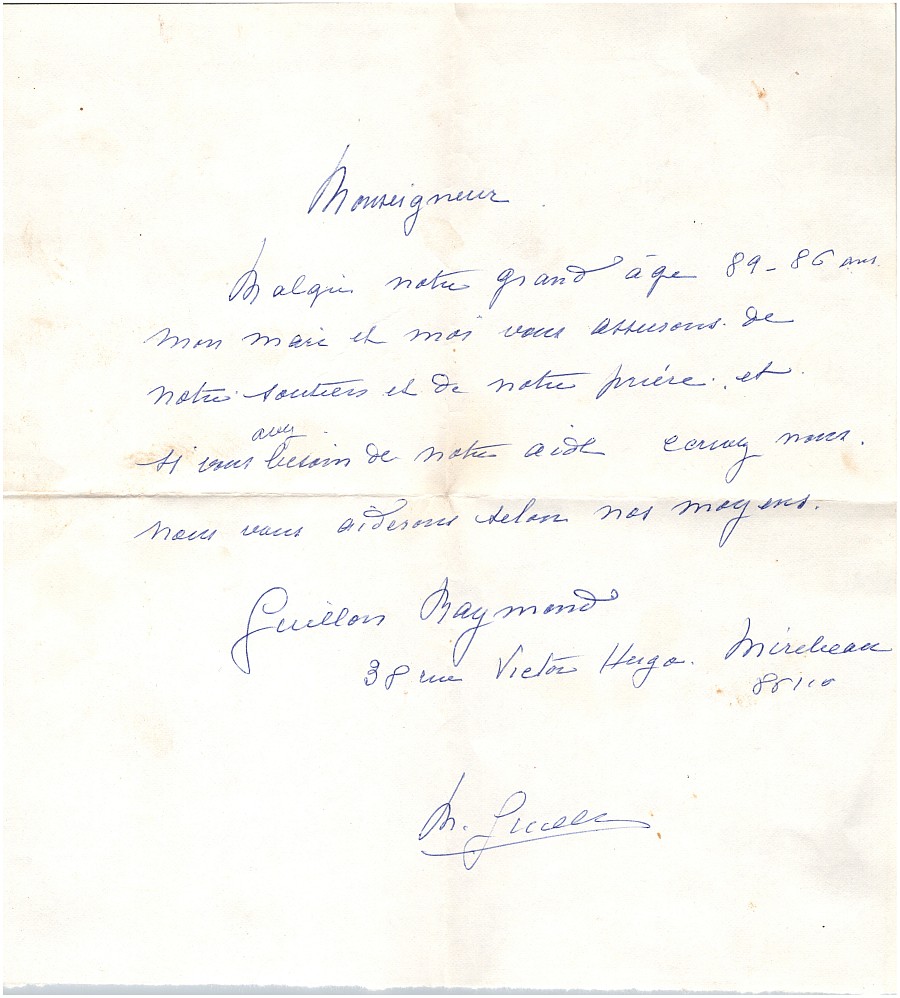 Monseigneur
Malgré notre grand âge 89-86 ans.
mon mari et moi vous assurons de
notre soutien et de notre prière. et
avez
si vous besoin de notre aide ecrivez nous.
nous vous aiderons selon nos moyens.
Guillon Raymond
38 rue Victor Hugo. Mirebeau
86110
M. Guillon